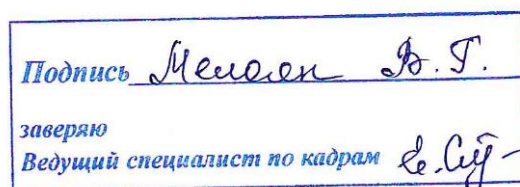 Подпись Мелоян В. Г.
заверяю
Ведущий специалист по кадрам